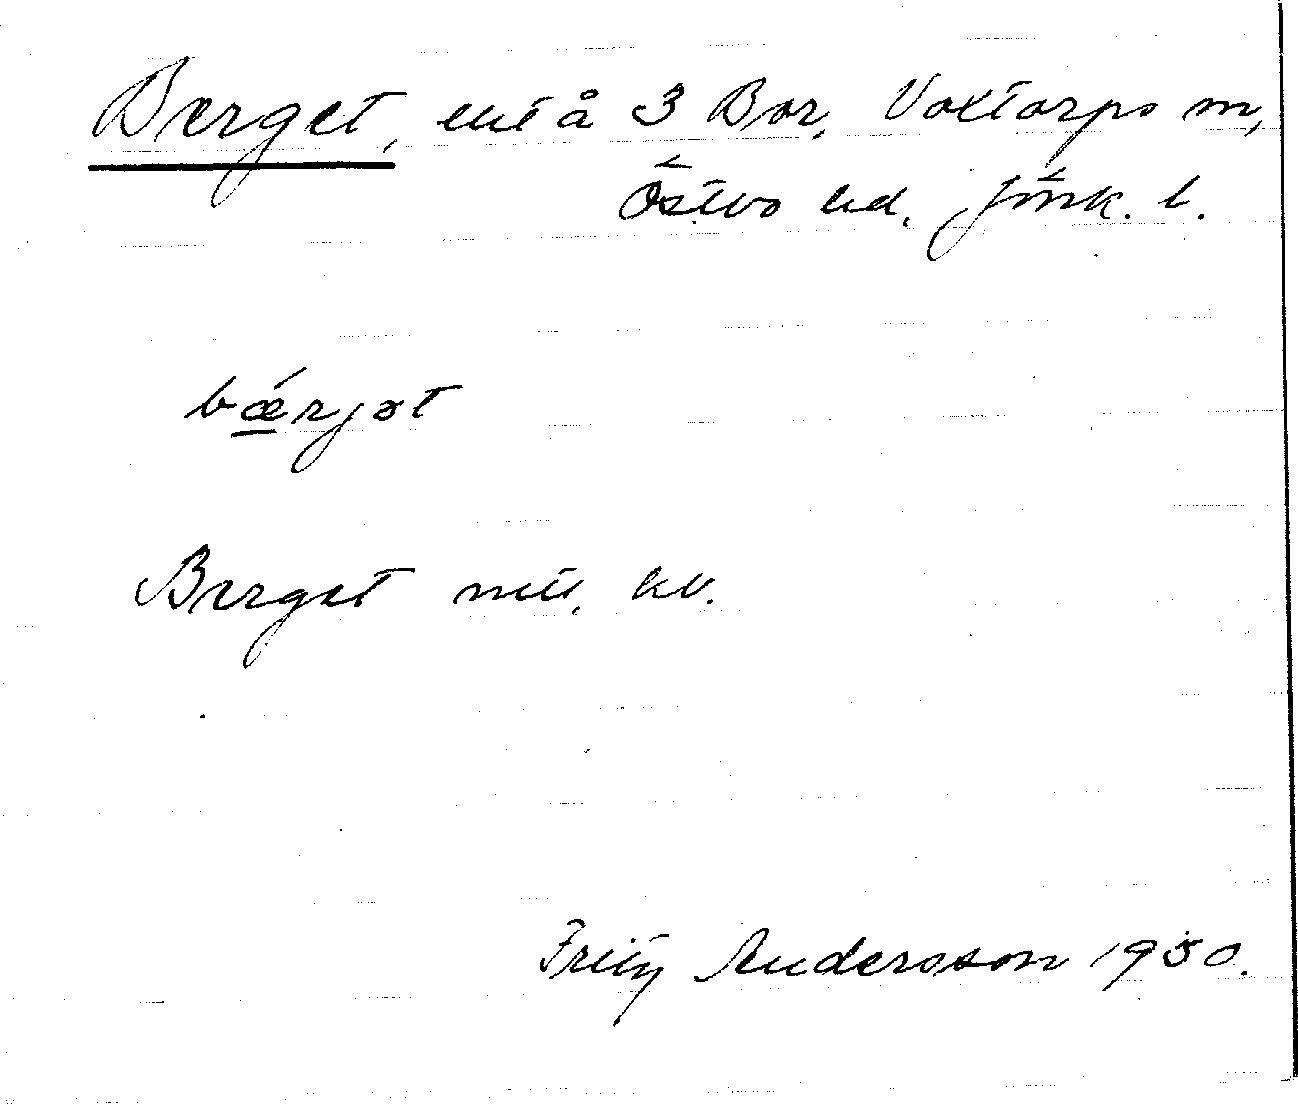 Berget, utå 3 Bor, Voxtorps sn,
Östbo hd, Jönk. l.
bǽrjət
Berget
Fritz Andersson 1950.